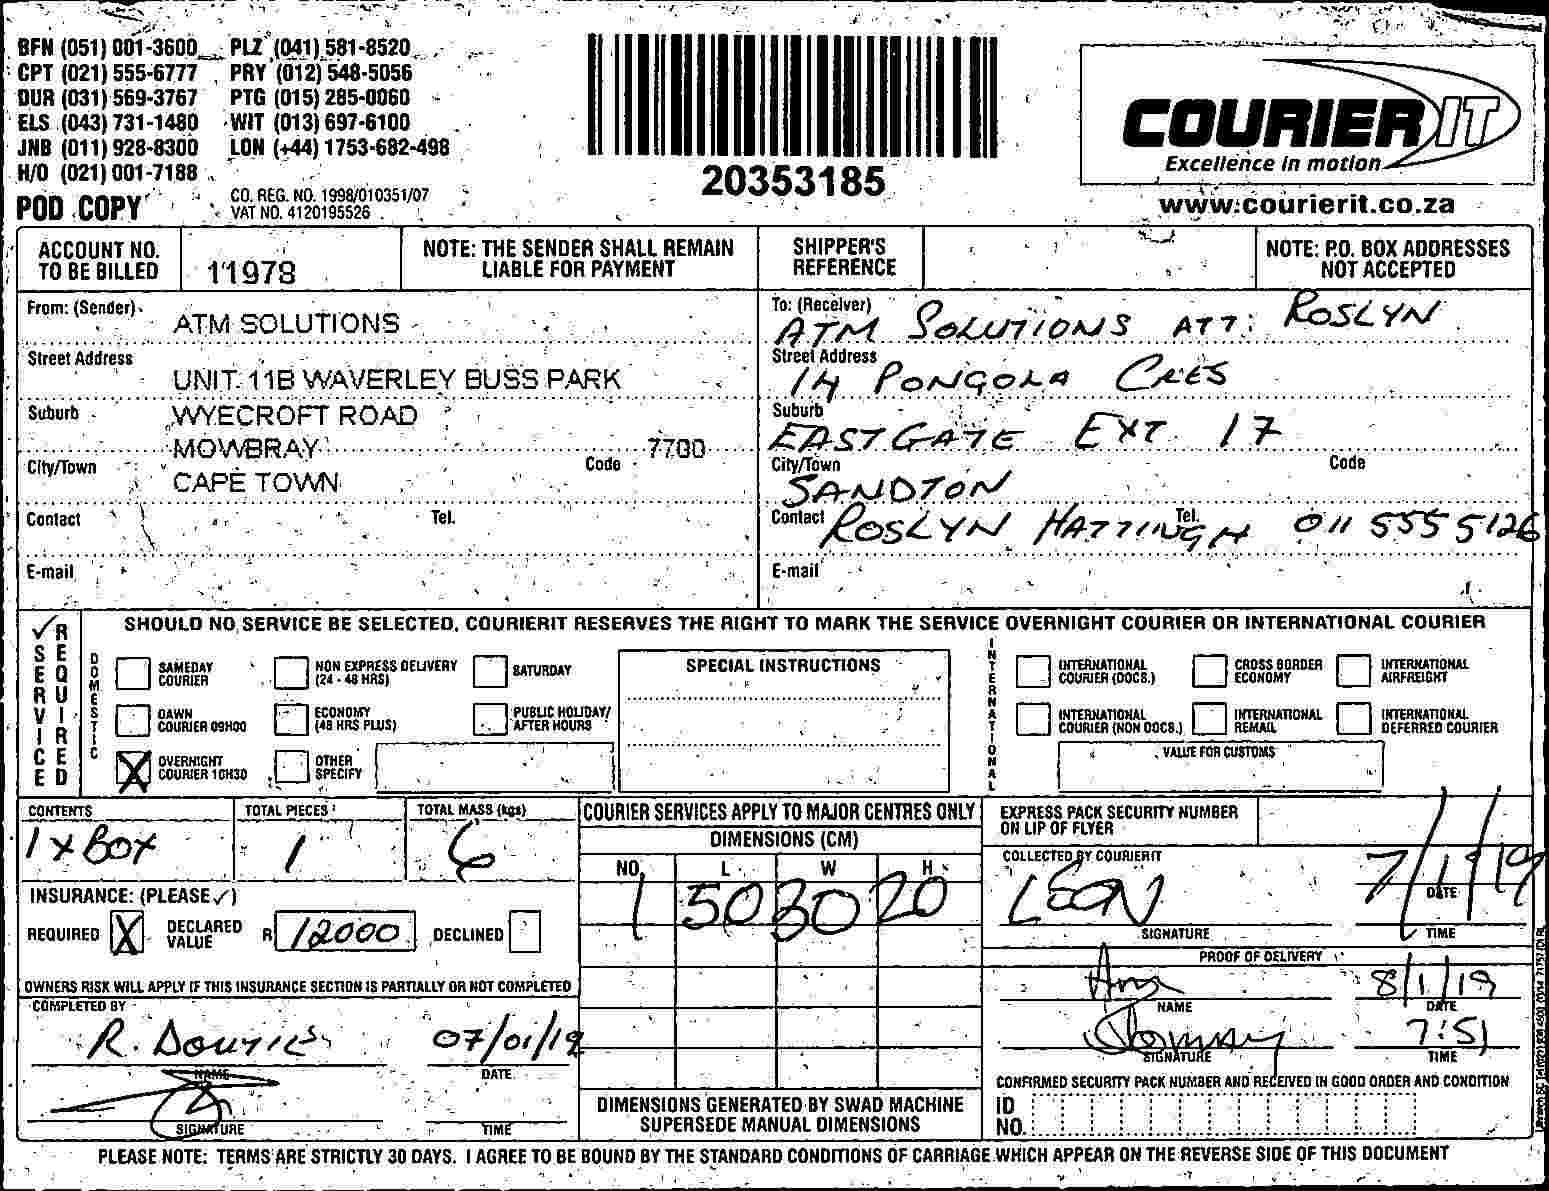 BFN (051) 001-3600 PLZ (041) 581-8520
CPT (021) 555-6777 PRY (012) 548-5056
DUR (031) 569-3767 PTG (015) 285-0060
ELS (043) 731-1480 WIT (013) 697-6100
JNB (011) 928-8300 LON (+44) 1753-682-498
H/O (021) 001-7188
POD COPY
CO. REG. NO. 1998/010351/07
VAT NO. 4120195526
20353185
COURIER IT
Excellence in motion
www.courierit.co.za
ACCOUNT NO. TO BE BILLED 11978
NOTE: THE SENDER SHALL REMAIN LIABLE FOR PAYMENT
SHIPPER'S REFERENCE
NOTE: P.O. BOX ADDRESSES NOT ACCEPTED
From: (Sender) ATM SOLUTIONS
Street Address UNIT 11B WAVERLEY BUSS PARK
Suburb WYECROFT ROAD
MOWBRAY 7700
City/Town CAPE TOWN Code
Contact Tel.
E-mail
To: (Receiver) ATM SOLUTIONS ATT: ROSLYN
Street Address 14 PONGOLA CRES
Suburb EASTGATE EXT 17
City/Town SANDTON Code
Contact ROSLYN HATTINGH Tel. 011 555 5126
E-mail
SERVICE REQUIRED
SHOULD NO SERVICE BE SELECTED, COURIERIT RESERVES THE RIGHT TO MARK THE SERVICE OVERNIGHT COURIER OR INTERNATIONAL COURIER
DOMESTIC
SAMEDAY COURIER
NON EXPRESS DELIVERY (24 - 48 HRS)
SATURDAY
DAWN COURIER 09H00
ECONOMY (48 HRS PLUS)
PUBLIC HOLIDAY/ AFTER HOURS
X OVERNIGHT COURIER 10H30
OTHER SPECIFY
SPECIAL INSTRUCTIONS
INTERNATIONAL
INTERNATIONAL COURIER (DOCS.)
CROSS BORDER ECONOMY
INTERNATIONAL AIRFREIGHT
INTERNATIONAL COURIER (NON DOCS.)
INTERNATIONAL REMAIL
INTERNATIONAL DEFERRED COURIER
VALUE FOR CUSTOMS
CONTENTS 1 x BOX
TOTAL PIECES 1
TOTAL MASS (kgs) 6
INSURANCE: (PLEASE ✓)
REQUIRED X DECLARED VALUE R 12000 DECLINED
OWNERS RISK WILL APPLY IF THIS INSURANCE SECTION IS PARTIALLY OR NOT COMPLETED
COMPLETED BY
R. 07/01/19
NAME DATE
SIGNATURE TIME
COURIER SERVICES APPLY TO MAJOR CENTRES ONLY
DIMENSIONS (CM)
NO. L W H
1 50 30 20
DIMENSIONS GENERATED BY SWAD MACHINE
SUPERSEDE MANUAL DIMENSIONS
EXPRESS PACK SECURITY NUMBER
ON LIP OF FLYER
COLLECTED BY COURIERIT
LEON 7/1/19
DATE
SIGNATURE TIME
PROOF OF DELIVERY
8/1/19
NAME DATE
7:51
SIGNATURE TIME
CONFIRMED SECURITY PACK NUMBER AND RECEIVED IN GOOD ORDER AND CONDITION
ID NO.
PLEASE NOTE: TERMS ARE STRICTLY 30 DAYS. I AGREE TO BE BOUND BY THE STANDARD CONDITIONS OF CARRIAGE WHICH APPEAR ON THE REVERSE SIDE OF THIS DOCUMENT